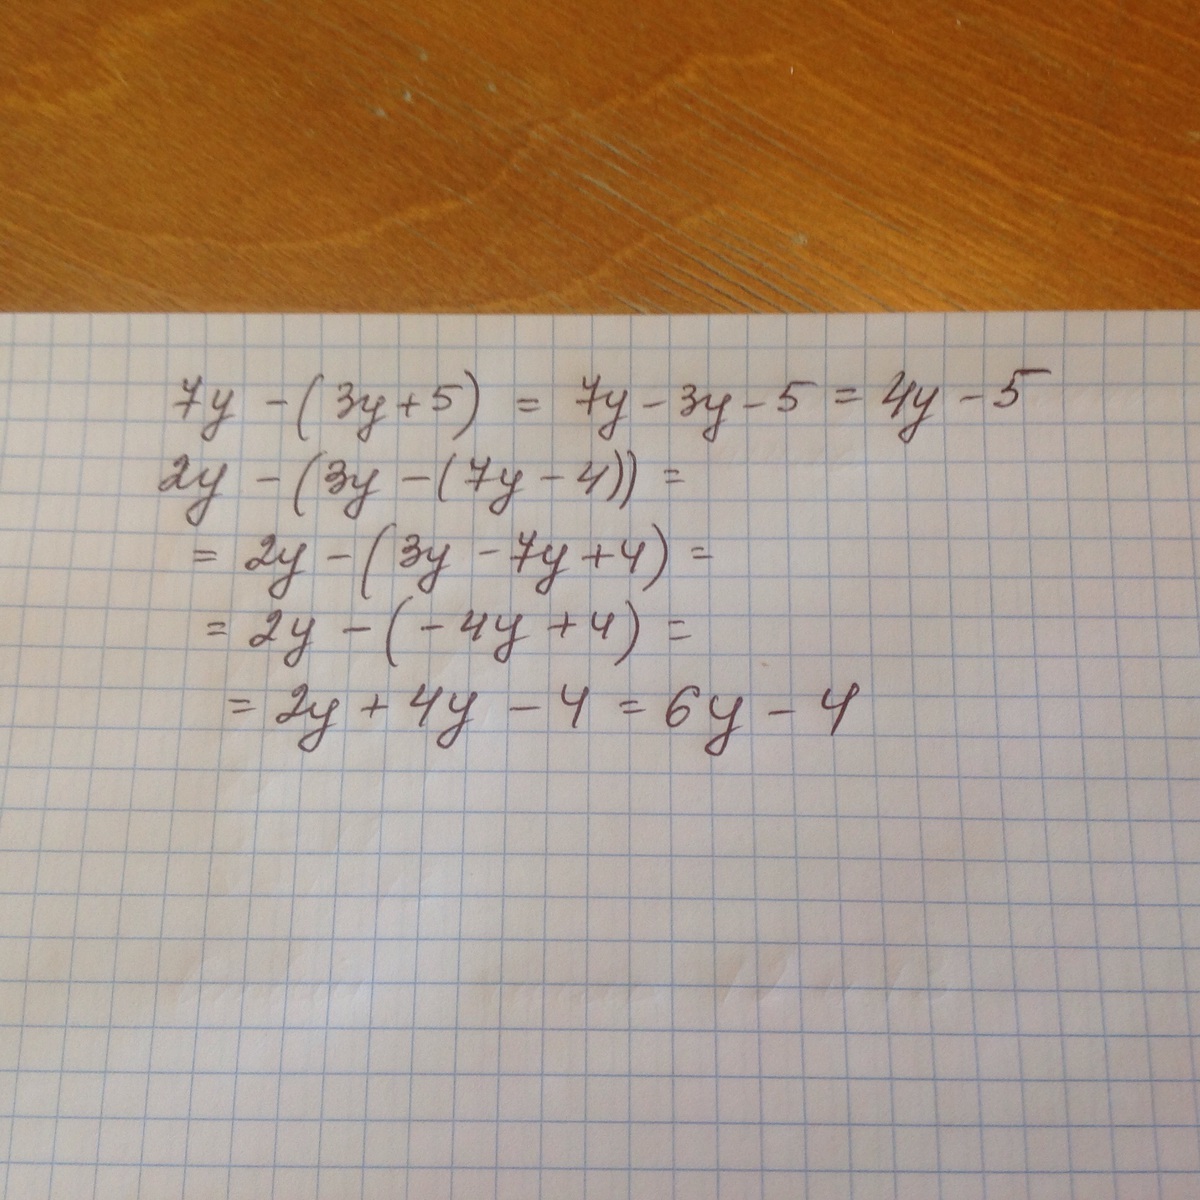 7y - (3y + 5) = 7y - 3y - 5 = 4y - 5
2y - (3y - (7y - 4)) =
= 2y - (3y - 7y + 4) =
= 2y - (- 4y + 4) =
= 2y + 4y - 4 = 6y - 4